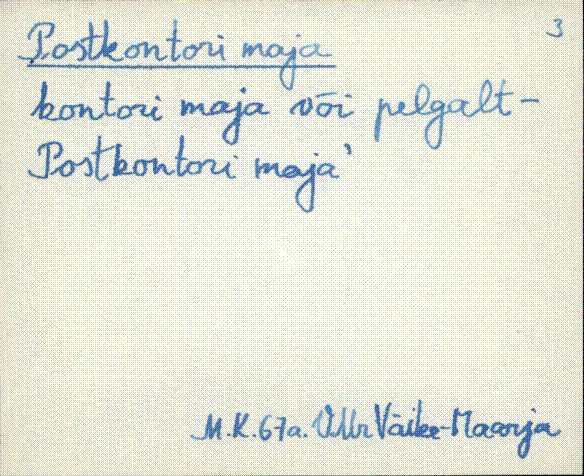 3
Postkontori maja
kontori maja või pelgalt-
Postkontori maja'
M.K. 67a. VMr Väike-Maarja